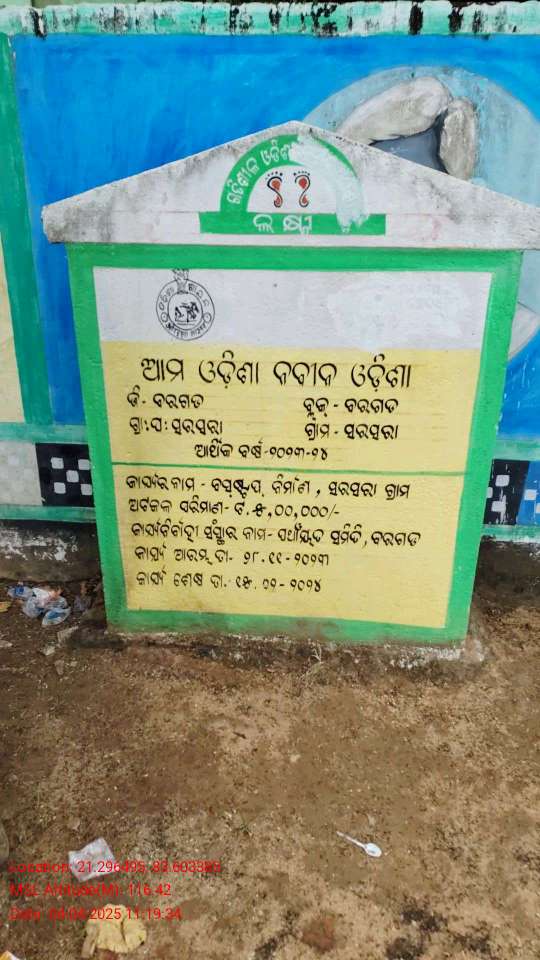 ଗତିଶୀଳ ଓଡ଼ିଶା
ଲକ୍ଷ୍ମୀ
ଆମ ଓଡ଼ିଶା ନବୀନ ଓଡ଼ିଶା
ଜି- ବରଗଡ ବ୍ଲକ୍- ବରଗଡ
ଗ୍ରା:ପ: ସରସରା ଗ୍ରାମ- ସରସରା
ଆର୍ଥିକ ବର୍ଷ-୨୦୨୩-୨୪
କାର୍ଯ୍ୟର ନାମ - ବସ୍‌ଷ୍ଟପ୍ ନିର୍ମାଣ, ସରସରା ଗ୍ରାମ
ଅଟକଳ ପରିମାଣ- ଟ.୫,୦୦,୦୦୦/-
କାର୍ଯ୍ୟନିର୍ବାହୀ ସଂସ୍ଥାର ନାମ- ପଞ୍ଚାୟତ ସମିତି, ବରଗଡ
କାର୍ଯ୍ୟ ଆରମ୍ଭ ତା- ୨୮.୧୧-୨୦୨୩
କାର୍ଯ୍ୟ ଶେଷ ତା.- ୧୫. ୭୨-୨୦୨୪
Location: 21.296495, 83.603385
MSL Altitude(M): 116.42
2025 11:19:34